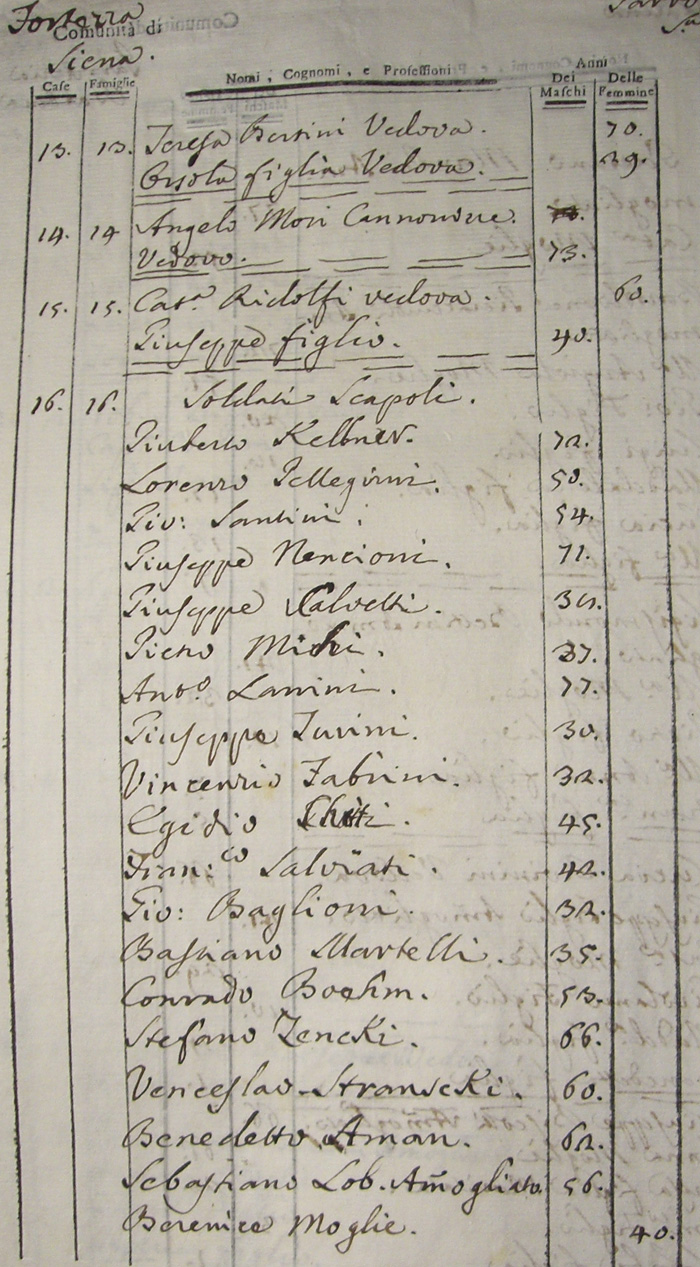 Fortezza
Comunità di
Siena.
Case Famiglie Nomi, Cognomi, e Professioni Anni Dei Maschi Delle Femmine
13. 13. Teresa Bersini Vedova. 70.
Orsola figlia Vedova. 39.
14. 14 Angelo Mori Cannoniere.
Vedovo. 73.
15. 15. Cat.a Ridolfi vedova. 60.
Giuseppe figlio. 40.
16. 16. Soldati Scapoli.
Kellner. 72.
Lorenzo Pellegrini. 50.
Gio: Santini. 54.
Giuseppe Nencioni. 71.
Giuseppe Calvetti.
Pietro 37.
Ant.o Lannini. 77.
Giuseppe Turini. 30.
Vincenzio Fabrini. 32.
Egidio Chiti. 45.
Fran:co Salviati. 42.
Gio: Baglioni. 32.
Bastiano Martelli. 35.
Corrado Boehm. 53.
Stefano Zencki. 66.
Venceslao Stranscki. 60.
Benedetto Aman. 62.
Sebastiano Lob. Am̃ogliato. 56.
Berenice Moglie. 40.